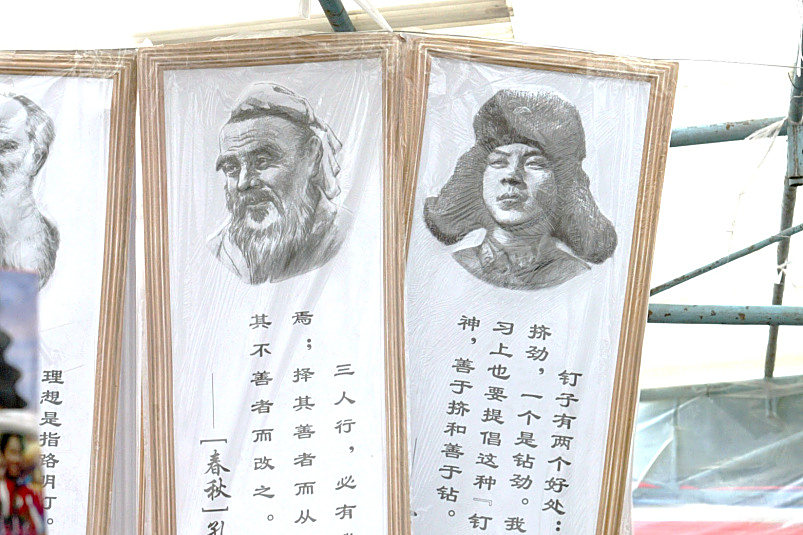 钉子有两个好处：
挤劲，一个是钻劲。我
习上也要提倡这种『钉
神，善于挤和善于钻。
三人行，必有
焉；择其善者而从
其不善者而改之。
——［春秋］孔
理想是指路明灯。